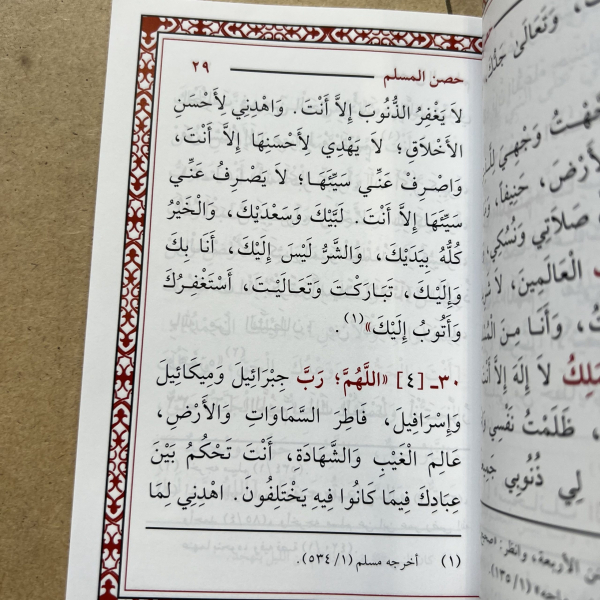 حصن المسلم ٢٩
لاَ يَغْفِرُ الذُّنُوبَ إِلاَّ أَنْتَ. وَاهْدِنِي لِأَحْسَنِ
الأَخْلاَقِ؛ لاَ يَهْدِي لِأَحْسَنِهَا إِلاَّ أَنْتَ،
وَاصْرِفْ عَنِّي سَيِّئَهَا؛ لاَ يَصْرِفُ عَنِّي
سَيِّئَهَا إِلاَّ أَنْتَ. لَبَّيْكَ وَسَعْدَيْكَ، وَالْخَيْرُ
كُلُّهُ بِيَدَيْكَ، وَالشَّرُّ لَيْسَ إِلَيْكَ، أَنَا بِكَ
وَإِلَيْكَ، تَبَارَكْتَ وَتَعَالَيْتَ، أَسْتَغْفِرُكَ
وَأَتُوبُ إِلَيْكَ»(١).
٣٠ـ [٤] «اللَّهُمَّ؛ رَبَّ جِبْرَائِيلَ وَمِيكَائِيلَ
وَإِسْرَافِيلَ، فَاطِرَ السَّمَاوَاتِ وَالأَرْضِ،
عَالِمَ الْغَيْبِ وَالشَّهَادَةِ، أَنْتَ تَحْكُمُ بَيْنَ
عِبَادِكَ فِيمَا كَانُوا فِيهِ يَخْتَلِفُونَ. اهْدِنِي لِمَا
(١) أخرجه مسلم (١/ ٥٣٤).
وَتَعَالَى
وَجْهِيَ
حَنِيفاً،
صَلاَتِي وَنُسُكِي،
الْعَالَمِينَ، لاَ
وَأَنَا مِنَ
لاَ إِلَهَ إِلاَّ
ظَلَمْتُ نَفْسِي
لِي ذُنُوبِي
الأربعة، وانظر:
(١/ ١٣٥)